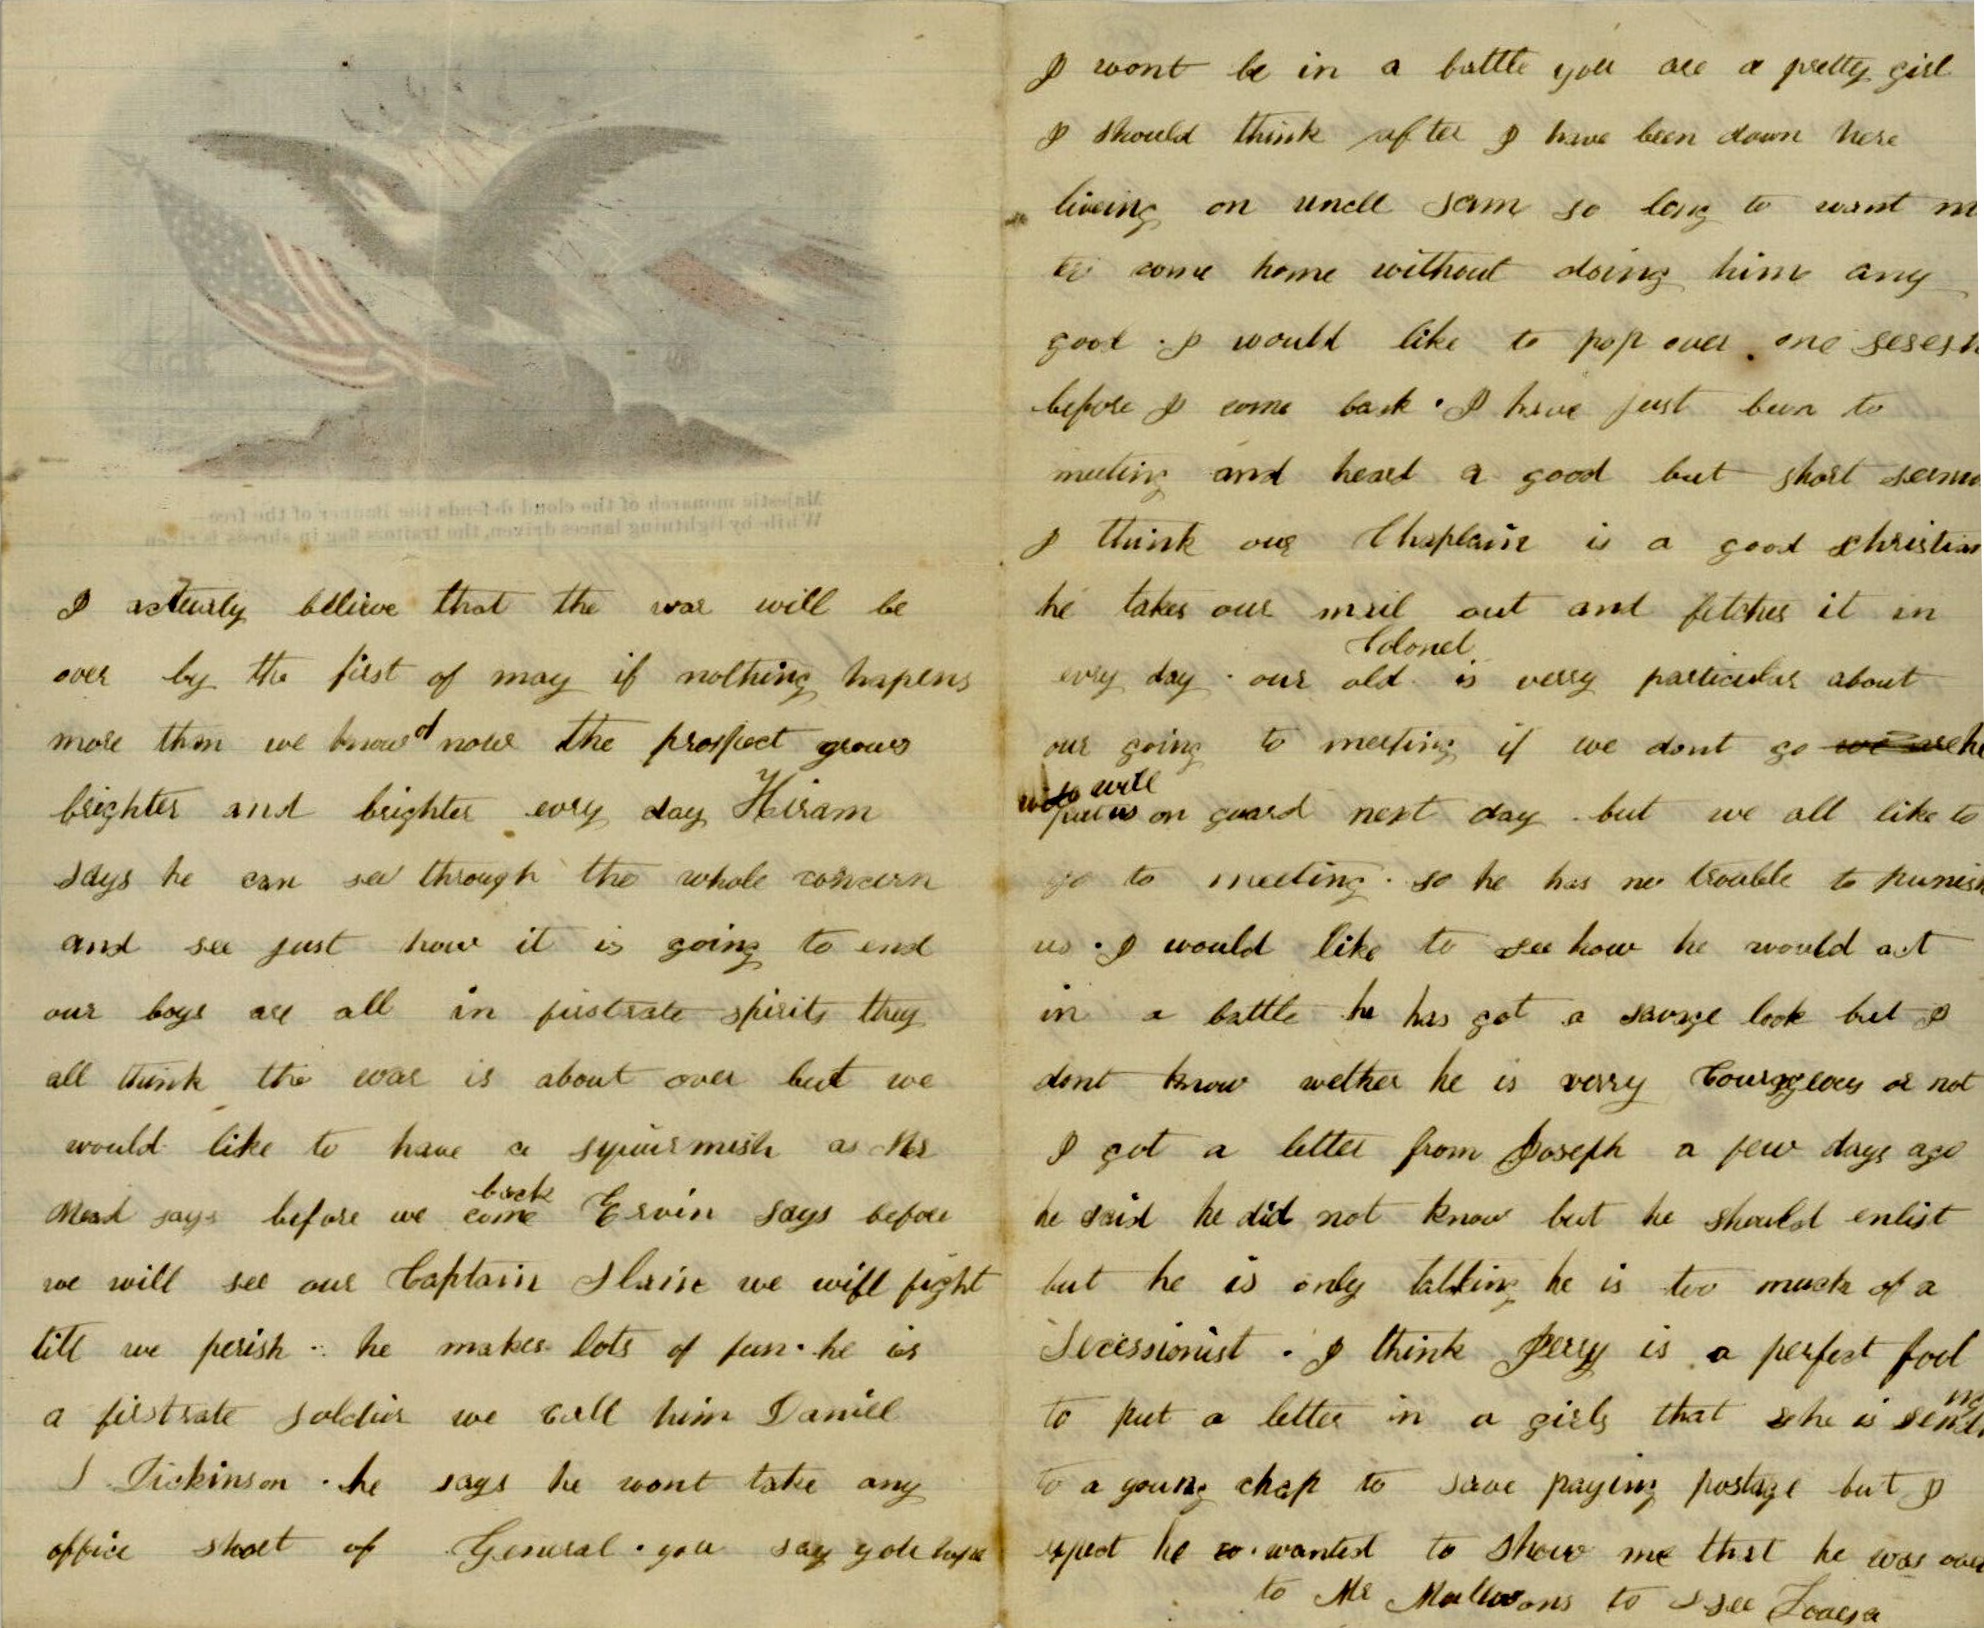 Majestic monarch of the cloud defends the banner of the free—
While by lightning lances driven, the traitors flag in shreds is riven
I actuly believe that the war will be
over by the first of may if nothing hapens
more than we know of now the prospect grows
brighter and brighter evry day Hiram
says he can see through the whole concern
and see just how it is going to end
our boys are all in firstrate spirits they
all think the war is about over but we
would like to have a squirmish as Mr
Mead says before we come back Ervin says before
we will see our Captain Slain we will fight
till we perish .. he makes lots of fun . he is
a firstrate soldier we call him Daniel
S Dickinson . he says he wont take any
office short of General . you say you hope
I wont be in a battle you are a pretty girl
I should think after I have been down here
liveing on uncle Sam so long to want m
to come home without doing him any
good . I would like to pop over one sesesh
before I come back . I have just been to
meeting and heard a good but short sermo
I think our Chaplain is a good christian
he takes our mail out and fetches it in
evry day . our old Colonel is verry particular about
our going to meeting if we dont go we are he
will put us on guard next day . but we all like to
go to meeting . so he has no trouble to punish
us . I would like to see how he would act
in a battle he has got a savage look but I
dont know wether he is verry Courageous or not
I got a letter from Joseph a few days ago
he said he did not know but he should enlist
but he is only talking he is too much of a
Secessionist . I think Jerry is a perfect fool
to put a letter in a girls that she is sending
to a young chap to save paying postage but I
expect he so wanted to show me that he was over
to Mr to see Louesa